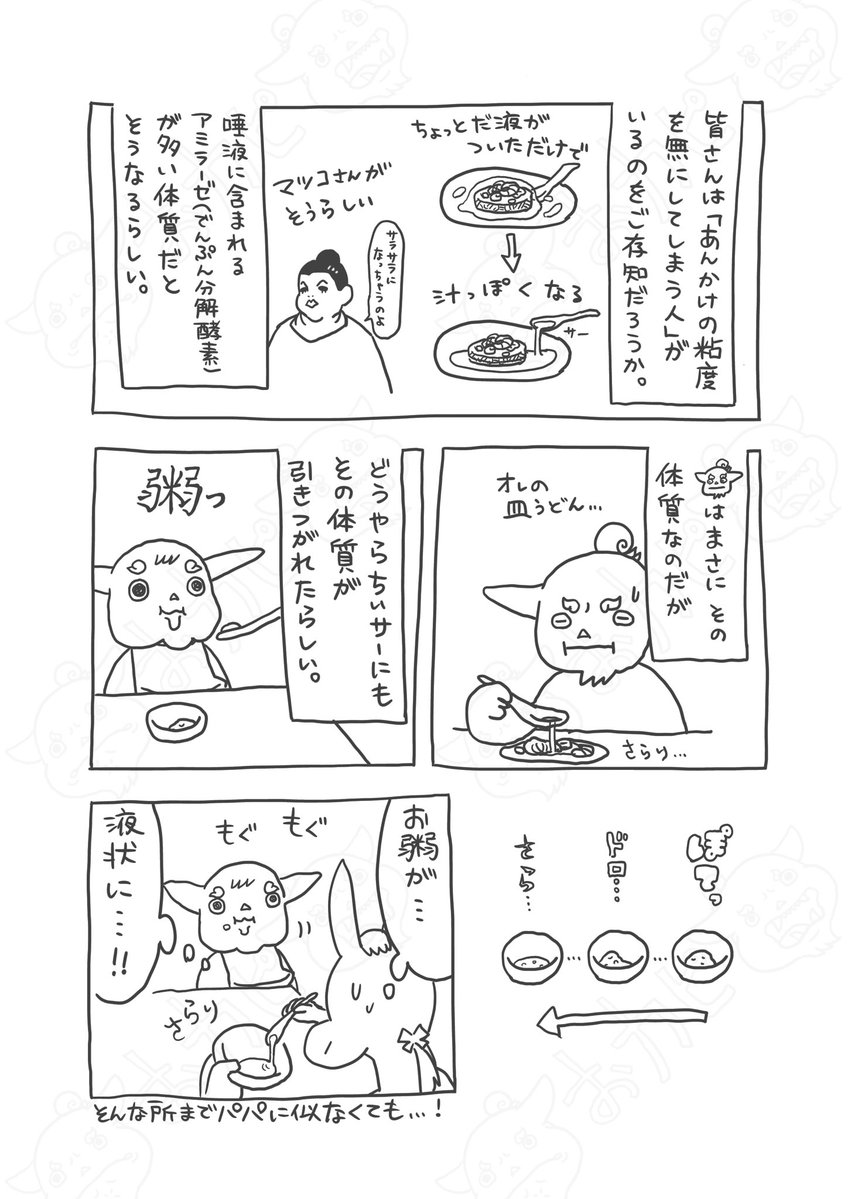 皆さんは「あんかけの粘度
を無にしてしまう人」が
いるのをご存知だろうか。
ちょっとだ液が
ついただけで
汁っぽくなる
サー
マツコさんが
そうらしい
サラサラに
なっちゃうのよ
唾液に含まれる
アミラーゼ(でんぷん分解酵素)
が多い体質だと
そうなるらしい。
はまさにその
体質なのだが
オレの
皿うどん…
さらり…
どうやらちぃサーにも
その体質が
引きつがれたらしい。
粥っ
ドロ…
さらっ…
お粥が…
もぐ もぐ
液状に…!!
さらり
そんな所までパパに似なくても…!